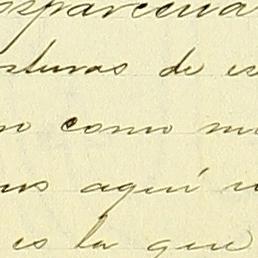 sparecua
sturas de es
n como mu
us aquí u
es la que